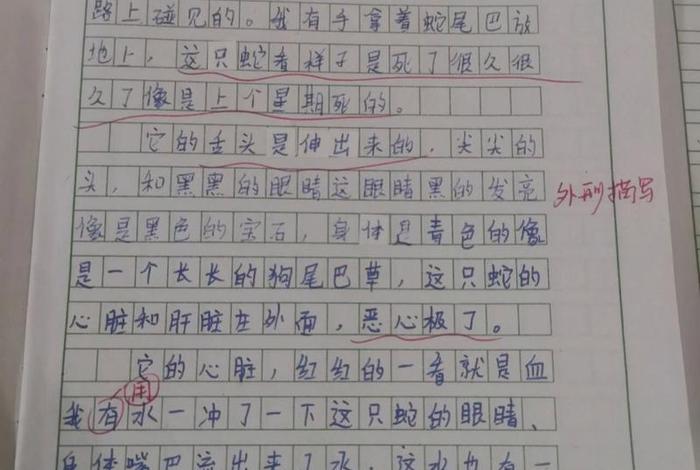 路上碰见的。我有手拿着蛇尾巴放
地上，这只蛇看样子是死了很久很
久了像是上个星期死的。
它的舌头是伸出来的，尖尖的
头，和黑黑的眼睛这眼睛黑的发亮
外形描写
像是黑色的宝石，身体是青色的像
是一个长长的狗尾巴草，这只蛇的
心脏和肝脏在外面，恶心极了。
它的心脏，红红的一看就是血
用
我有水一冲了一下这只蛇的眼睛、
身体嘴巴流出来了水，这水也有一